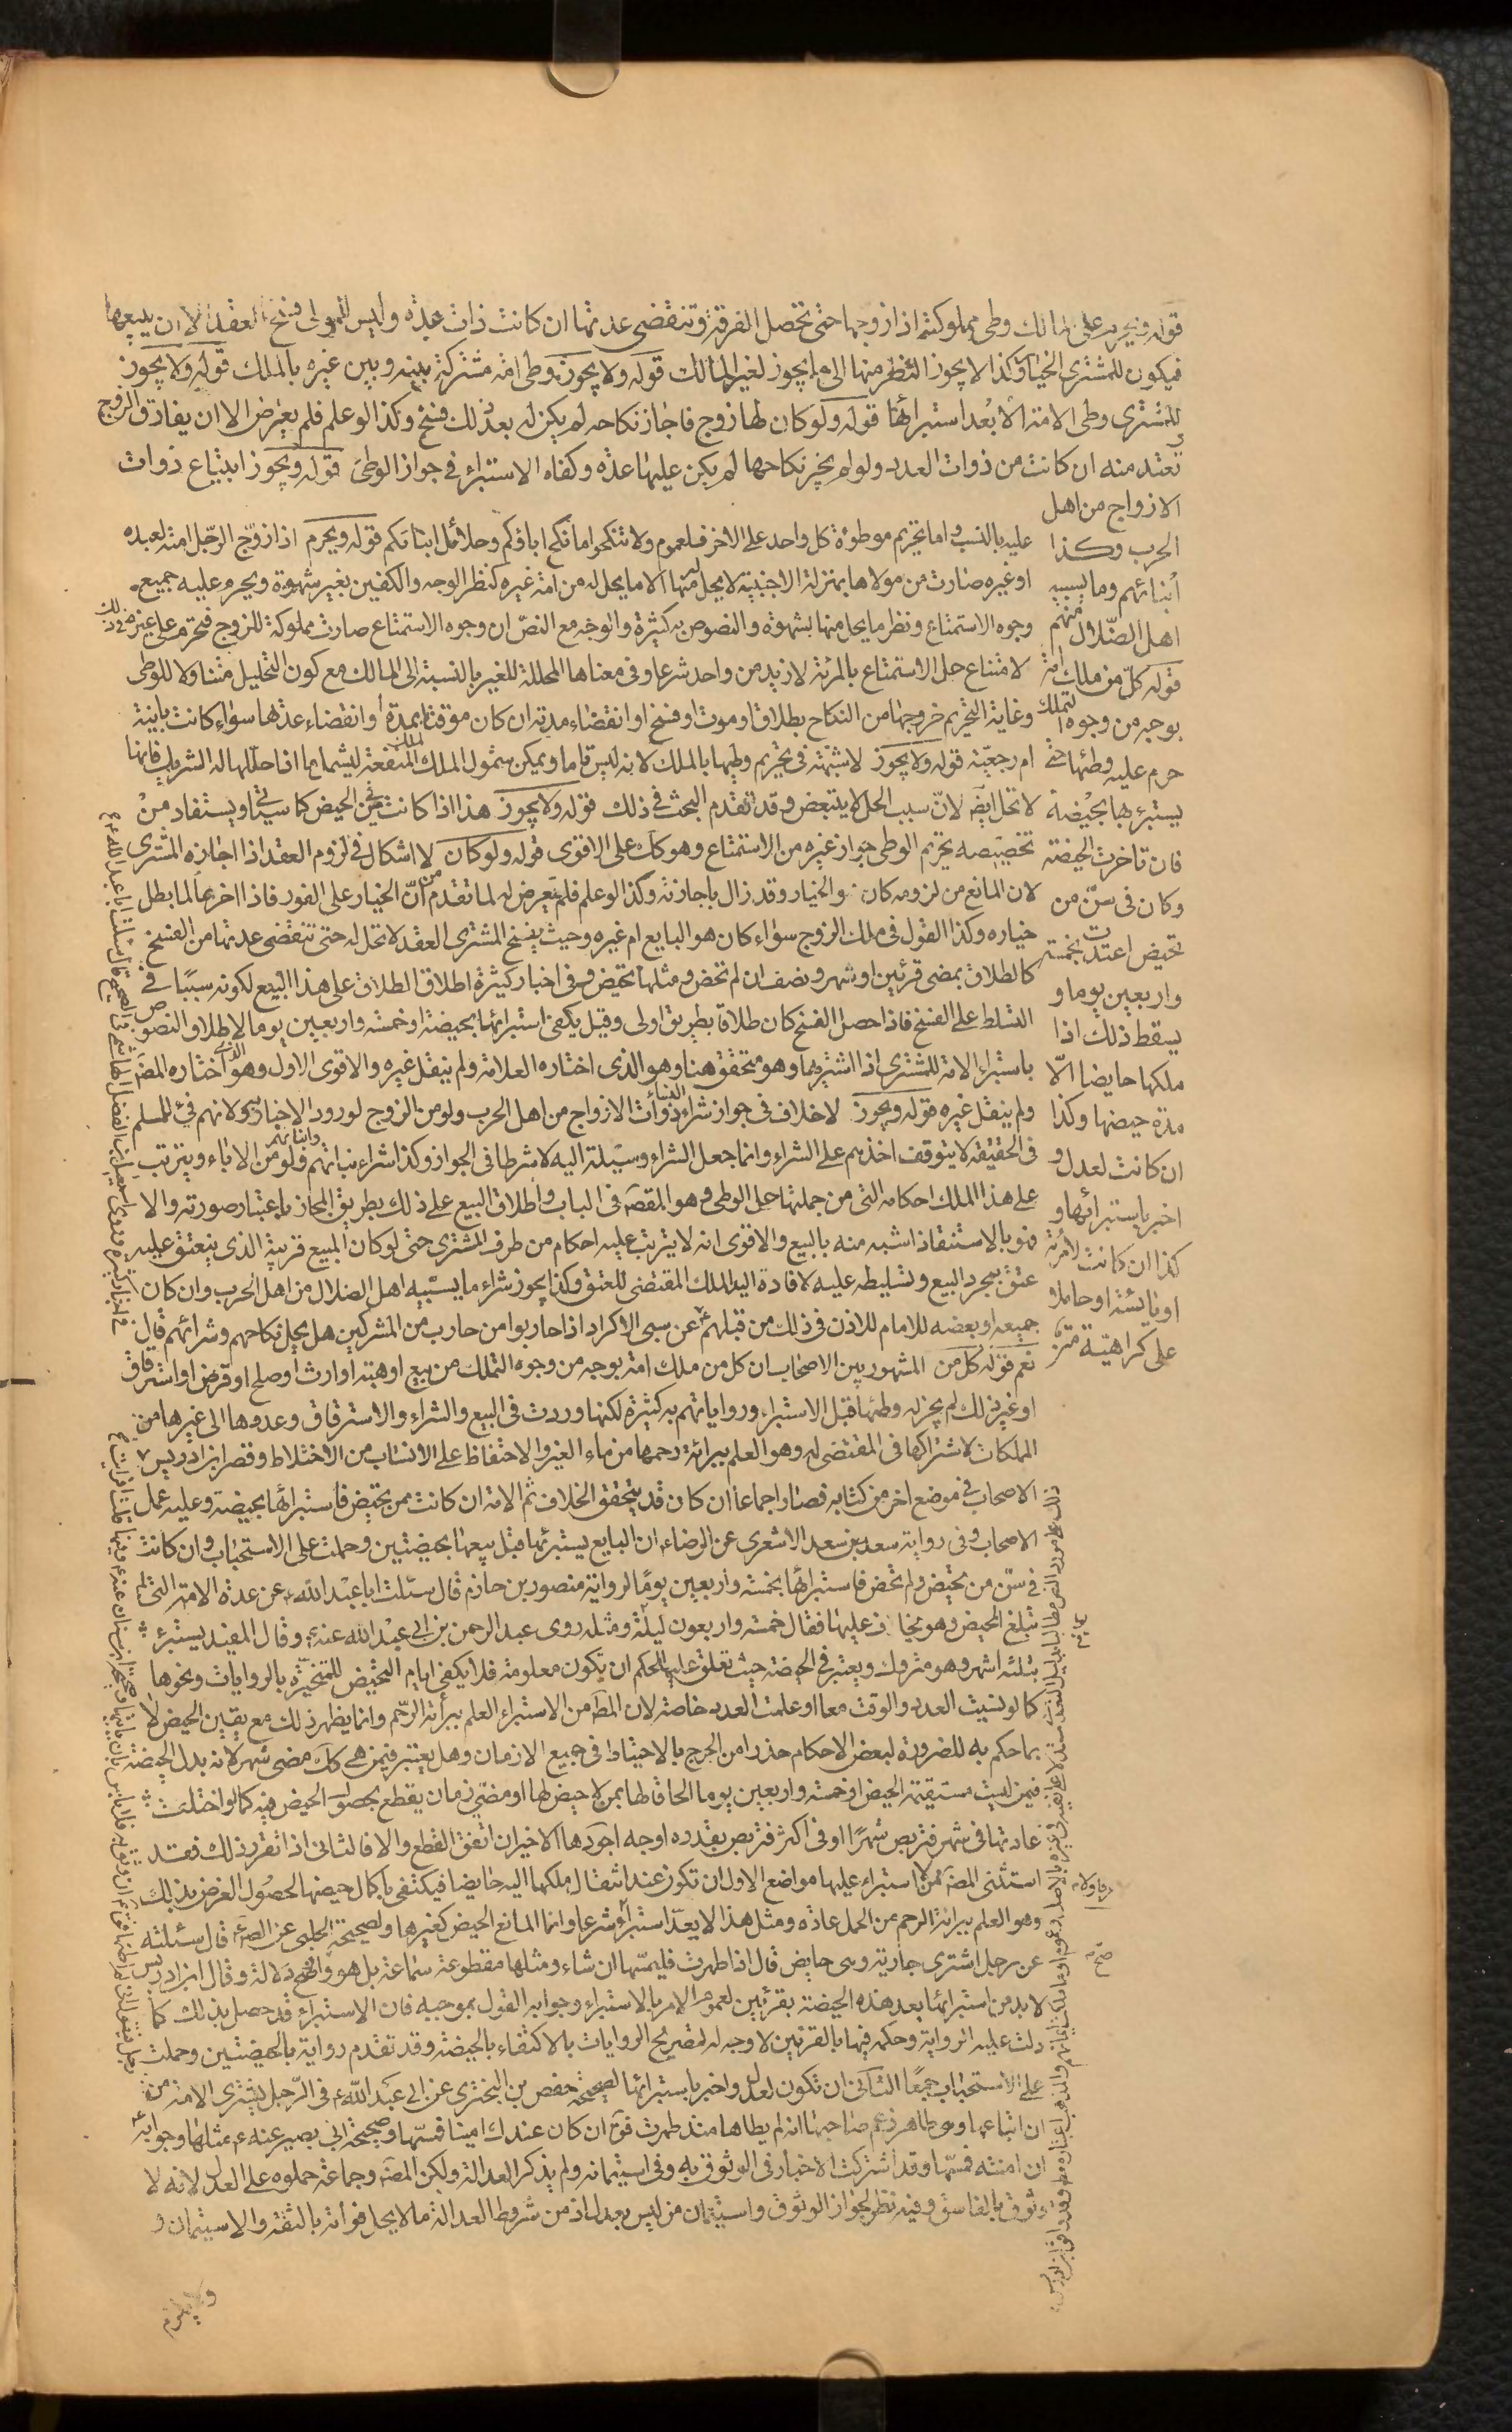 قوله ويحرم على المالك وطى مملوكته اذا زوجها حتى تحصل الفرقة وتنقضى عدتها ان كانت ذات عدة وليس للمولى فسخ العقد الا ان يبيعها
فيكون للمشترى الخيار وكذا لا يجوز النظر منها الى ما يجوز لغير المالك قوله ولا يجوز وطى امة مشتركة بينه وبين غيره بالملك قوله ولا يجوز
للمشترى وطى الامة الا بعد استبرائها قوله ولو كان لها زوج فاجاز نكاحه لم يكن له بعد ذلك فسخ وكذا لو علم فلم يعترض الا ان يفارق الزوج
وتعتد منه ان كانت من ذوات العدد ولو لم يجز نكاحها لم يكن عليها عدة وكفاه الاستبراء فى جواز الوطى قوله ويجوز ابتياع ذوات
الازواج من اهل
الحرب وكذا
ابنائهم وما يسبيه
اهل الضلال منهم
قوله كل من ملك امة
بوجه من وجوه التملك
حرم عليه وطئها حتى
يستبرءها بحيضة
فان تاخرت الحيضة
وكان فى سن من
تحيض اعتدت بخمسة
واربعين يوما و
يسقط ذلك اذا
ملكها حايضا الا
مدة حيضها وكذا
ان كانت لعدل و
اخبر باستبرائها و
كذا ان كانت لامرئة
او يائسة او حاملا
على كراهية
عليه بالنسب واما تحريم موطوءة كل واحد على الاخر فلعموم ولا تنكحوا ما نكح اباؤكم وحلائل ابنائكم قوله ويحرم اذا زوج الرجل امته لعبده
او غيره صارت من مولاها بمنزلة الاجنبية لا يحل له منها الا ما يحل له من امة غيره كنظر الوجه والكفين بغير شهوة ويحرم عليه جميع
وجوه الاستمتاع ونظر ما يحل منها بشهوة والنصوص به كثيرة والوجه مع النص ان وجوه الاستمتاع صارت مملوكة للزوج فتحرم على غيره
لامتناع حل الاستمتاع بالمرئة لازيد من واحد شرعا وفى معناها المحللة للغير بالنسبة الى المالك مع كون التحليل متناولا للوطى
وغاية التحريم خروجها من النكاح بطلاق او موت او فسخ او انقضاء مدته ان كان موقتا بمدة او انقضاء عدتها سواء كانت باينة
ام رجعية قوله ولا يجوز لا شبهة فى تحريم وطيها بالملك لانه ليس تاما ويمكن شمول الملك لملك المنفعة ليشمل ما اذا حللها له الشريك فانها
لا تحل ايضا لان سبب الحل لا يتبعض وقد تقدم البحث فى ذلك قوله ولا يجوز هذا اذا كانت ممن تحيض كما سياتى ويستفاد من
تخصيصه تحريم الوطى جواز غيره من الاستمتاع وهو كك على الاقوى قوله ولو كان لا اشكال فى لزوم العقد اذا اجازه المشترى
لان المانع من لزومه كان والخيار وقد زال باجازته وكذا لو علم فلم يعرض له لما تقدم من ان الخيار على الفور فاذا اخر عالما بطل
خياره وكذا القول فى ملك الزوج سواء كان هو البايع ام غيره وحيث يفسخ المشترى العقد لا تحل له حتى تنقضى عدتها من الفسخ
كالطلاق بمضى قرئين او شهر ونصف ان لم تحض ومثلها تحيض وفى اخبار كثيرة اطلاق الطلاق على هذا البيع لكونه سببا فى
التسلط على الفسخ فاذا حصل الفسخ كان طلاقا بطريق اولى وقيل يكفى استبرائها بحيضة او خمسة واربعين يوما لاطلاق النصوص
باستبراء الامة للمشترى اذا اشتريها وهو متحقق هنا وهو الذى اختاره العلامة ولم ينقل غيره والاقوى الاول وهو الذى اختاره المصنف
ولم ينقل غيره قوله ويجوز لا خلاف فى جواز شراء النساء ذوات الازواج من اهل الحرب ولو من الزوج لورود الاخبار به ولانهم فىء للمسلم
فى الحقيقة لا يتوقف اخذهم على الشراء وانما جعل الشراء وسيلة اليه لا شرطا فى الجواز وكذا شراء بناتهم وابنائهم ولو من الاباء ويترتب
على هذا الملك احكامه التى من جملتها حل الوطى وهو المقصود فى الباب واطلاق البيع على ذلك بطريق المجاز باعتبار صورته والا
فهو بالاستنقاذ اشبه منه بالبيع والاقوى انه لا يترتب عليه احكام من طرف المشترى حتى لو كان المبيع قريبه الذى ينعتق عليه
عتق بمجرد البيع وتسليطه عليه لافادة اليد الملك المقتضى للعتق وكذا يجوز شراء ما يسبيه اهل الضلال من اهل الحرب وان كان
جميعه او بعضه للامام للاذن فى ذلك من قبلهم عن سبى الاكراد اذا حاربوا من حارب من المشركين هل يحل نكاحهم وشرائهم قال
نعم قوله كل من المشهور بين الاصحاب ان كل من ملك امة بوجه من وجوه التملك من بيع او هبة او ارث او صلح او قرض او استرقاق
او غير ذلك لم يجز له وطئها قبل الاستبراء ورواياتهم به كثيرة لكنها وردت فى البيع والشراء والاسترقاق وعدوها الى غيرها من
المملكات لاشتراكها فى المقتضى له وهو العلم ببرائة رحمها من ماء الغير والاحتفاظ على الانساب من الاختلاط وقصر ابن ادريس
الاصحاب فى موضع اخر من كتابه فصار اجماعا ان كان قد يتحقق الخلاف ثم الامة ان كانت ممن تحيض فاستبرائها بحيضة وعليه عمل
الاصحاب وفى رواية سعد بن سعد الاشعرى عن الرضا ان البايع يستبرئها قبل بيعها بحيضتين وحملت على الاستحباب وان كانت
فى سن من تحيض ولم تحض فاستبرائها بخمسة واربعين يوما لرواية منصور بن حازم قال سئلت ابا عبد الله عن عدة الامة التى لم
تبلغ المحيض وهو يخاف عليها فقال خمسة واربعون ليلة ومثله روى عبد الرحمن بن ابى عبد الله عنه وقال المفيد يستبرئ
بثلثة اشهر وهو متروك ويعتبر فى الحيضة حيث تعلق عليها الحكم ان تكون معلومة فلا يكفى ايام التحيض للمتحيرة بالروايات ونحوها
كما لو نسيت العدد والوقت معا او علمت العدد خاصة لان المط من الاستبراء العلم ببرائة الرحم وانما يظهر ذلك مع يقين الحيض لا
بما حكم به للضرورة لبعض الاحكام حذرا من الحرج بالاحتياط فى جميع الازمان وهل يعتبر فيمن هى كك مضى شهر لانه بدل الحيضة
فيمن ليست مستقيمة الحيض او خمسة واربعين يوما الحاقا لها بمن لا حيض لها او مضى زمان يقطع بحصول الحيض فيه كما لو اختلفت
عادتها فى شهر فتربص شهرا او فى اكثر فتربص بقدره اوجه اجودها الاخير ان اتفق القطع والا فالثانى اذا تقرر ذلك فقد
استثنى المصنف من الاستبراء عليها مواضع الاول ان تكون عند انتقال ملكها اليه حايضا فيكتفى باكمال حيضها لحصول الغرض بذلك
وهو العلم ببرائة الرحم من الحمل عادة ومثل هذا لا يعد استبراء شرعا وانما المانع الحيض كغيرها ولصحيحة الحلبى عن الصادق قال سئلته
عن رجل اشترى جارية وهى حايض قال اذا طهرت فليمسها ان شاء ومثلها مقطوعة سماعة بل هو اوضح دلالة وقال ابن ادريس
لا بد من استبرائها بعد هذه الحيضة بقرئين لعموم الامر بالاستبراء وجوابه القول بموجبه فان الاستبراء قد حصل بذلك كما
دلت عليه الرواية وحكمه فيها بالقرئين لا وجه له لتصريح الروايات بالاكتفاء بالحيضة وقد تقدم رواية بالحيضتين وحملت
على الاستحباب جمعا الثانى ان تكون لعدل واخبر باستبرائها لصحيحة حفص بن البخترى عن ابى عبد الله فى الرجل يشترى الامة من
ان ابتاعها وهى طاهر زعم صاحبها انه لم يطاها منذ طهرت فق ان كان عندك امينا فمسها وصحيحة ابى بصير عنه مثلها وجوابه
ان امنته فمسها وقد اشتركت الاخبار فى الوثوق به وفى استيمانه ولم يذكر العدالة ولكن المصنف وجماعة حملوه على العدل لانه لا
وثوق بالفاسق وفيه نظر لجواز الوثوق واستيمان من ليس بعدل اذ من شروط العدالة ما لا يخل فواته بالثقة والاستيمان و
ولا يلزم